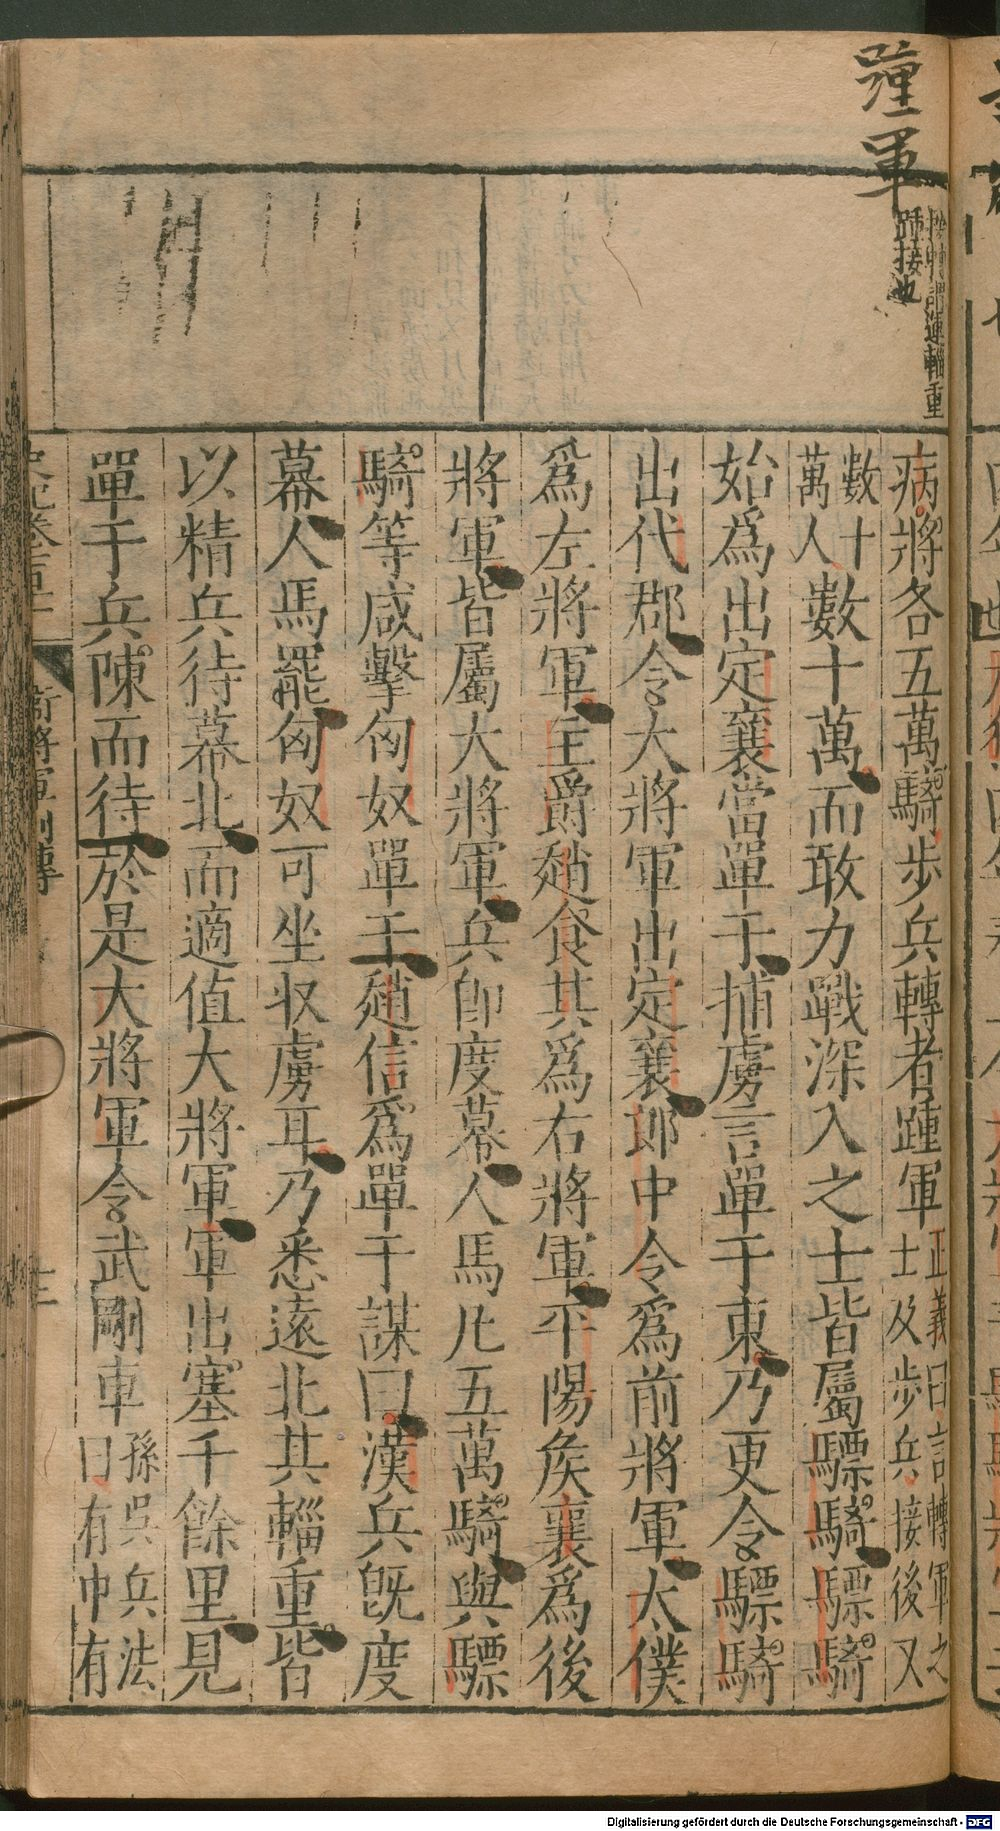 踵軍
按轉謂運輜重
踵接也
病將各五萬騎步兵轉者踵軍正義曰言轉軍之士及步兵接後又
數十萬人數十萬而敢力戰深入之士皆屬驃騎驃騎
始爲出定襄當單于捕虜言單于東乃更令驃騎
出代郡令大將軍出定襄郎中令爲前將軍太僕
爲左將軍主爵趙食其爲右將軍平陽侯襄爲後
將軍皆屬大將軍兵卽度幕人馬凡五萬騎與驃
騎等咸擊匈奴單于趙信爲單于謀曰漢兵旣度
幕人馬罷匈奴可坐収虜耳乃悉遠北其輜重皆
以精兵待幕北而適值大將軍軍出塞千餘里見
單于兵陳而待於是大將軍令武剛車孫吳兵法曰有巾有
衛將軍列傳
Digitalisierung gefördert durch die Deutsche Forschungsgemeinschaft - DFG